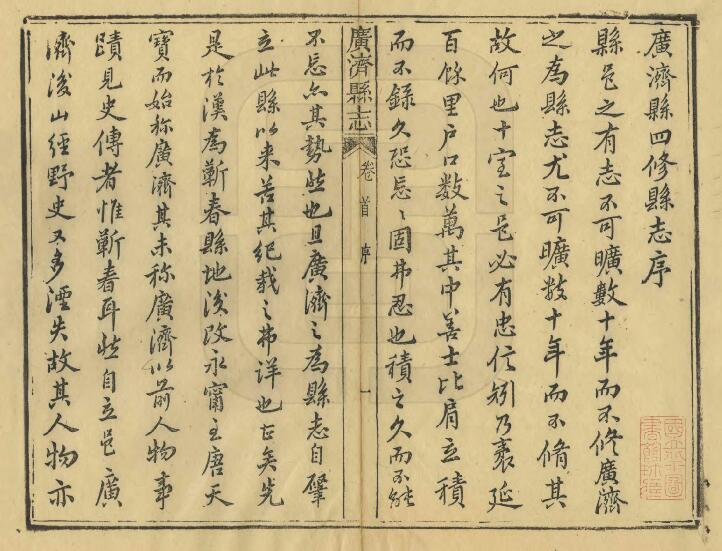 廣濟縣四修縣志序
縣邑之有志不可曠數十年而不修廣濟
之為縣志尤不可曠數十年而不脩其
故何也十室之邑必有忠信矧乃袤延
百餘里戶口數萬其中善士比肩立積
而不錄久恐忘〻固弗忍也積之久而不能
廣濟縣志
卷首
序
一
不忘亦其勢然也且廣濟之為縣志自肇
立此縣以來苦其紀載之弗詳也正矣先
是於漢為蘄春縣地後改永甯至唐天
寶而始称廣濟其未称廣濟以前人物事
蹟見史傳者惟蘄春耳然自立邑廣
濟後山經野史又多湮失故其人物亦